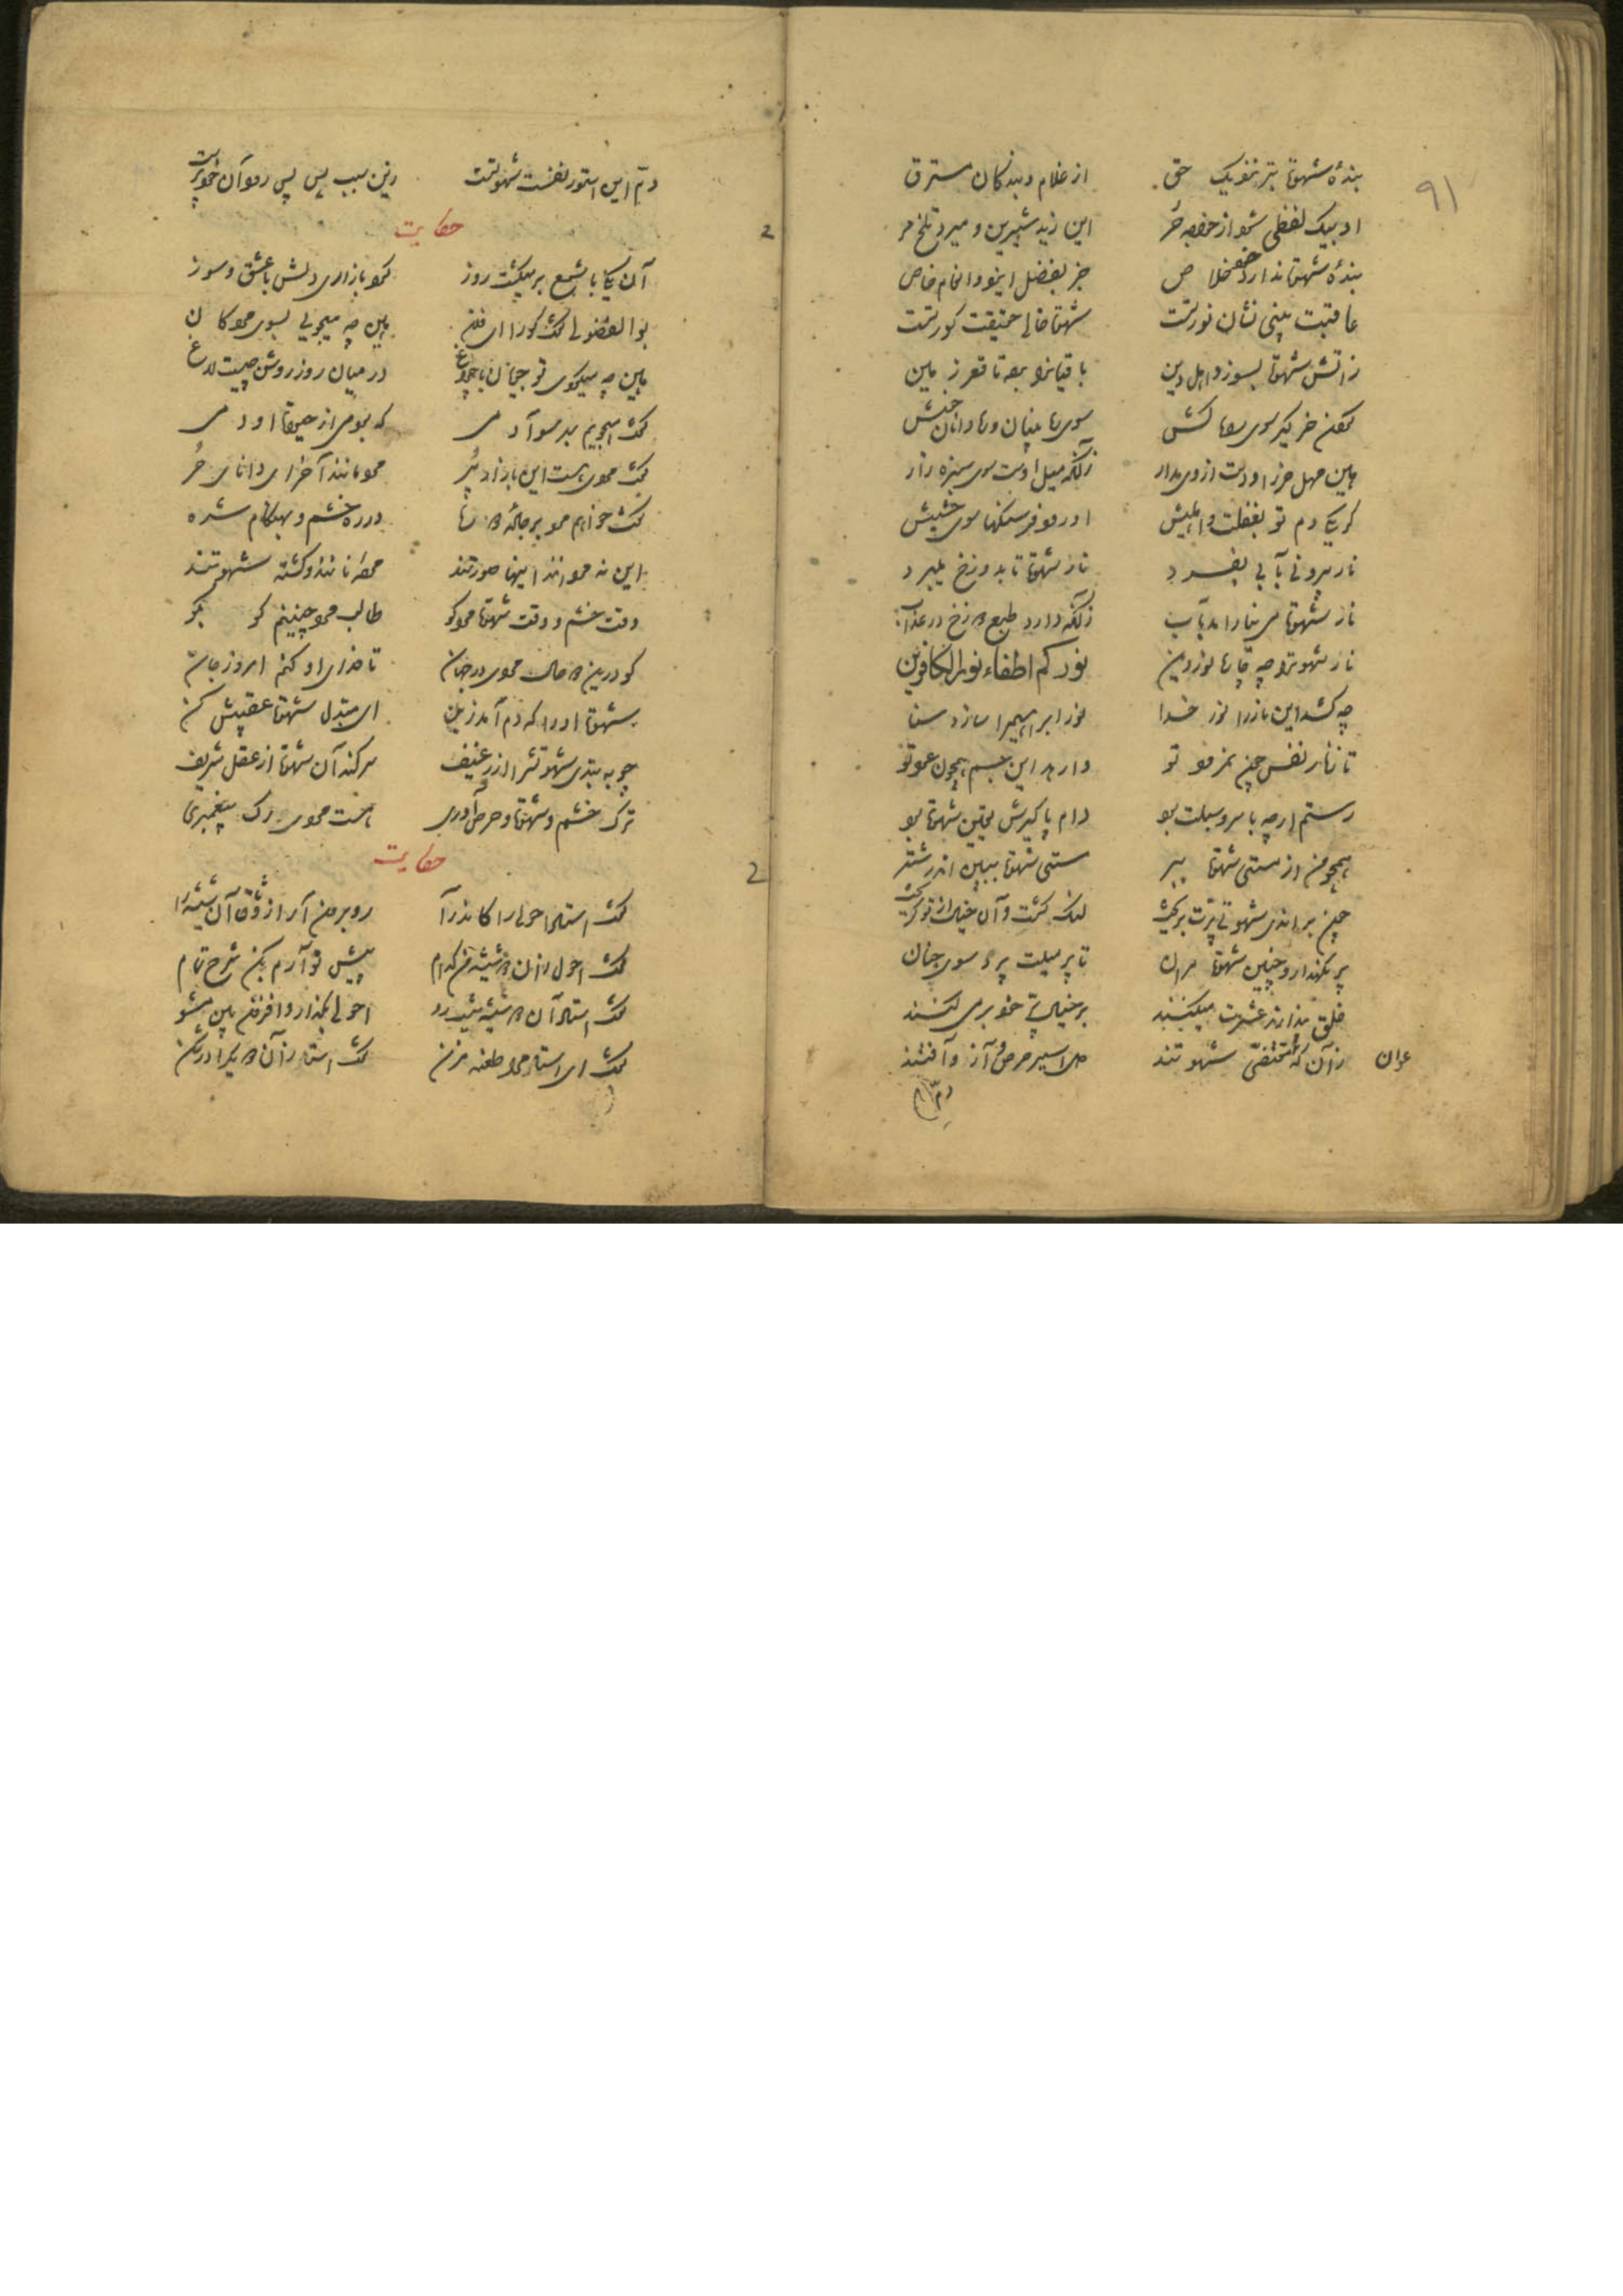 ۹۱
بندهٔ شهوت بتر نزدیک حق از غلام و بندگان مسترق
او بیک لفظی شود از خواجه حر این زید شیرین و میرد تلخ مر
بندهٔ شهوت ندارد خود خلاص جز بفضل ایزد و انعام خاص
عاقبت بینی نشان نور تست شهوت حالی حقیقت کور تست
زآتش شهوت نسوزد اهل دین باقیانرا برده تا قعر زمین
گردن خر گیر سوی راه کش سوی رهبانان و رهدانان خوش
هین مهل خر را و دست از وی مدار زآنکه میل اوست سوی سبزه زار
گر یکی دم تو بغفلت واهلیش او رود فرسنگها سوی حشیش
نار بیرونی بآبی بفسرد نار شهوت تا بدوزخ میبرد
نار شهوت می نیارامد بآب زآنکه دارد طبع دوزخ در عذاب
نار شهوترا چه چاره نور دین نورکم اطفاء نار الکافرین
چه کشد این نار را نور خدا نور ابراهیم را ساز اوستا
تا ز نار نفس چون نمرود تو وارهد این جسم همچون عود تو
رستم ارچه با سر و سبلت بود دام پاگیرش یقین شهوت بود
همچو من از مستی شهوت ببر مستی شهوت ببین اندر شتر
چون براندی شهوتی پرت بریخت لنگ گشتی وآن خیال از تو گریخت
پر نگهدار و چنین شهوت مران تا پر میلت برد سوی جنان
خلق پندارند عشرت میکنند بر خیالی پر خود بر می کنند
عوان زآن که مقتضی شهوتند اسیر حرص و آز و آفتند
دم
دم این استور نفست شهوتست زین سبب پس پس رود آن خود پرست
حکایت
آن یکی با شمع بر میگشت روز گرد بازاری دلش با عشق و سوز
بوالفضولی گفت کورا ای فلان هین چه میجویی بسوی هر دکان
هین چه میگردی تو جویان با چراغ در میان روز روشن چیست لاغ
گفت میجویم بهر سو آدمی که بود حی از حیوة او دمی
گفت مردی هست این بازار پر مردمانند آخر ای دانای حر
گفت خواهم مرد بر جادهٔ دو ره در ره خشم و بهنگام شره
این نه مردانند اینها صورتند مردهٔ نانند و کشتهٔ شهوتند
وقت خشم و وقت شهوت مرد کو طالب مرد چنینم کو بکو
کو درین دو حال مردی در جهان تا فدای او کنم امروز جان
شهوت او را که دم آمد ز بن ای مبدل شهوت عقبیش کن
چون ببندی شهوتش را از رغیف سر کند آن شهوت از عقل شریف
ترک خشم و شهوت و حرص آوری هست مردی و رگ پیغمبری
حکایت
گفت استاد احولی را کاندرآ رو برون آر از وثاق آن شیشه را
گفت احول زآن دو شیشه من کدام پیش تو آرم بکن شرح تمام
گفت استاد آن دو شیشه نیست رو احولی بگذار و افزون بین مشو
گفت ای استاد مرا طعنه مزن گفت استا زآن دو یکرا در شکن